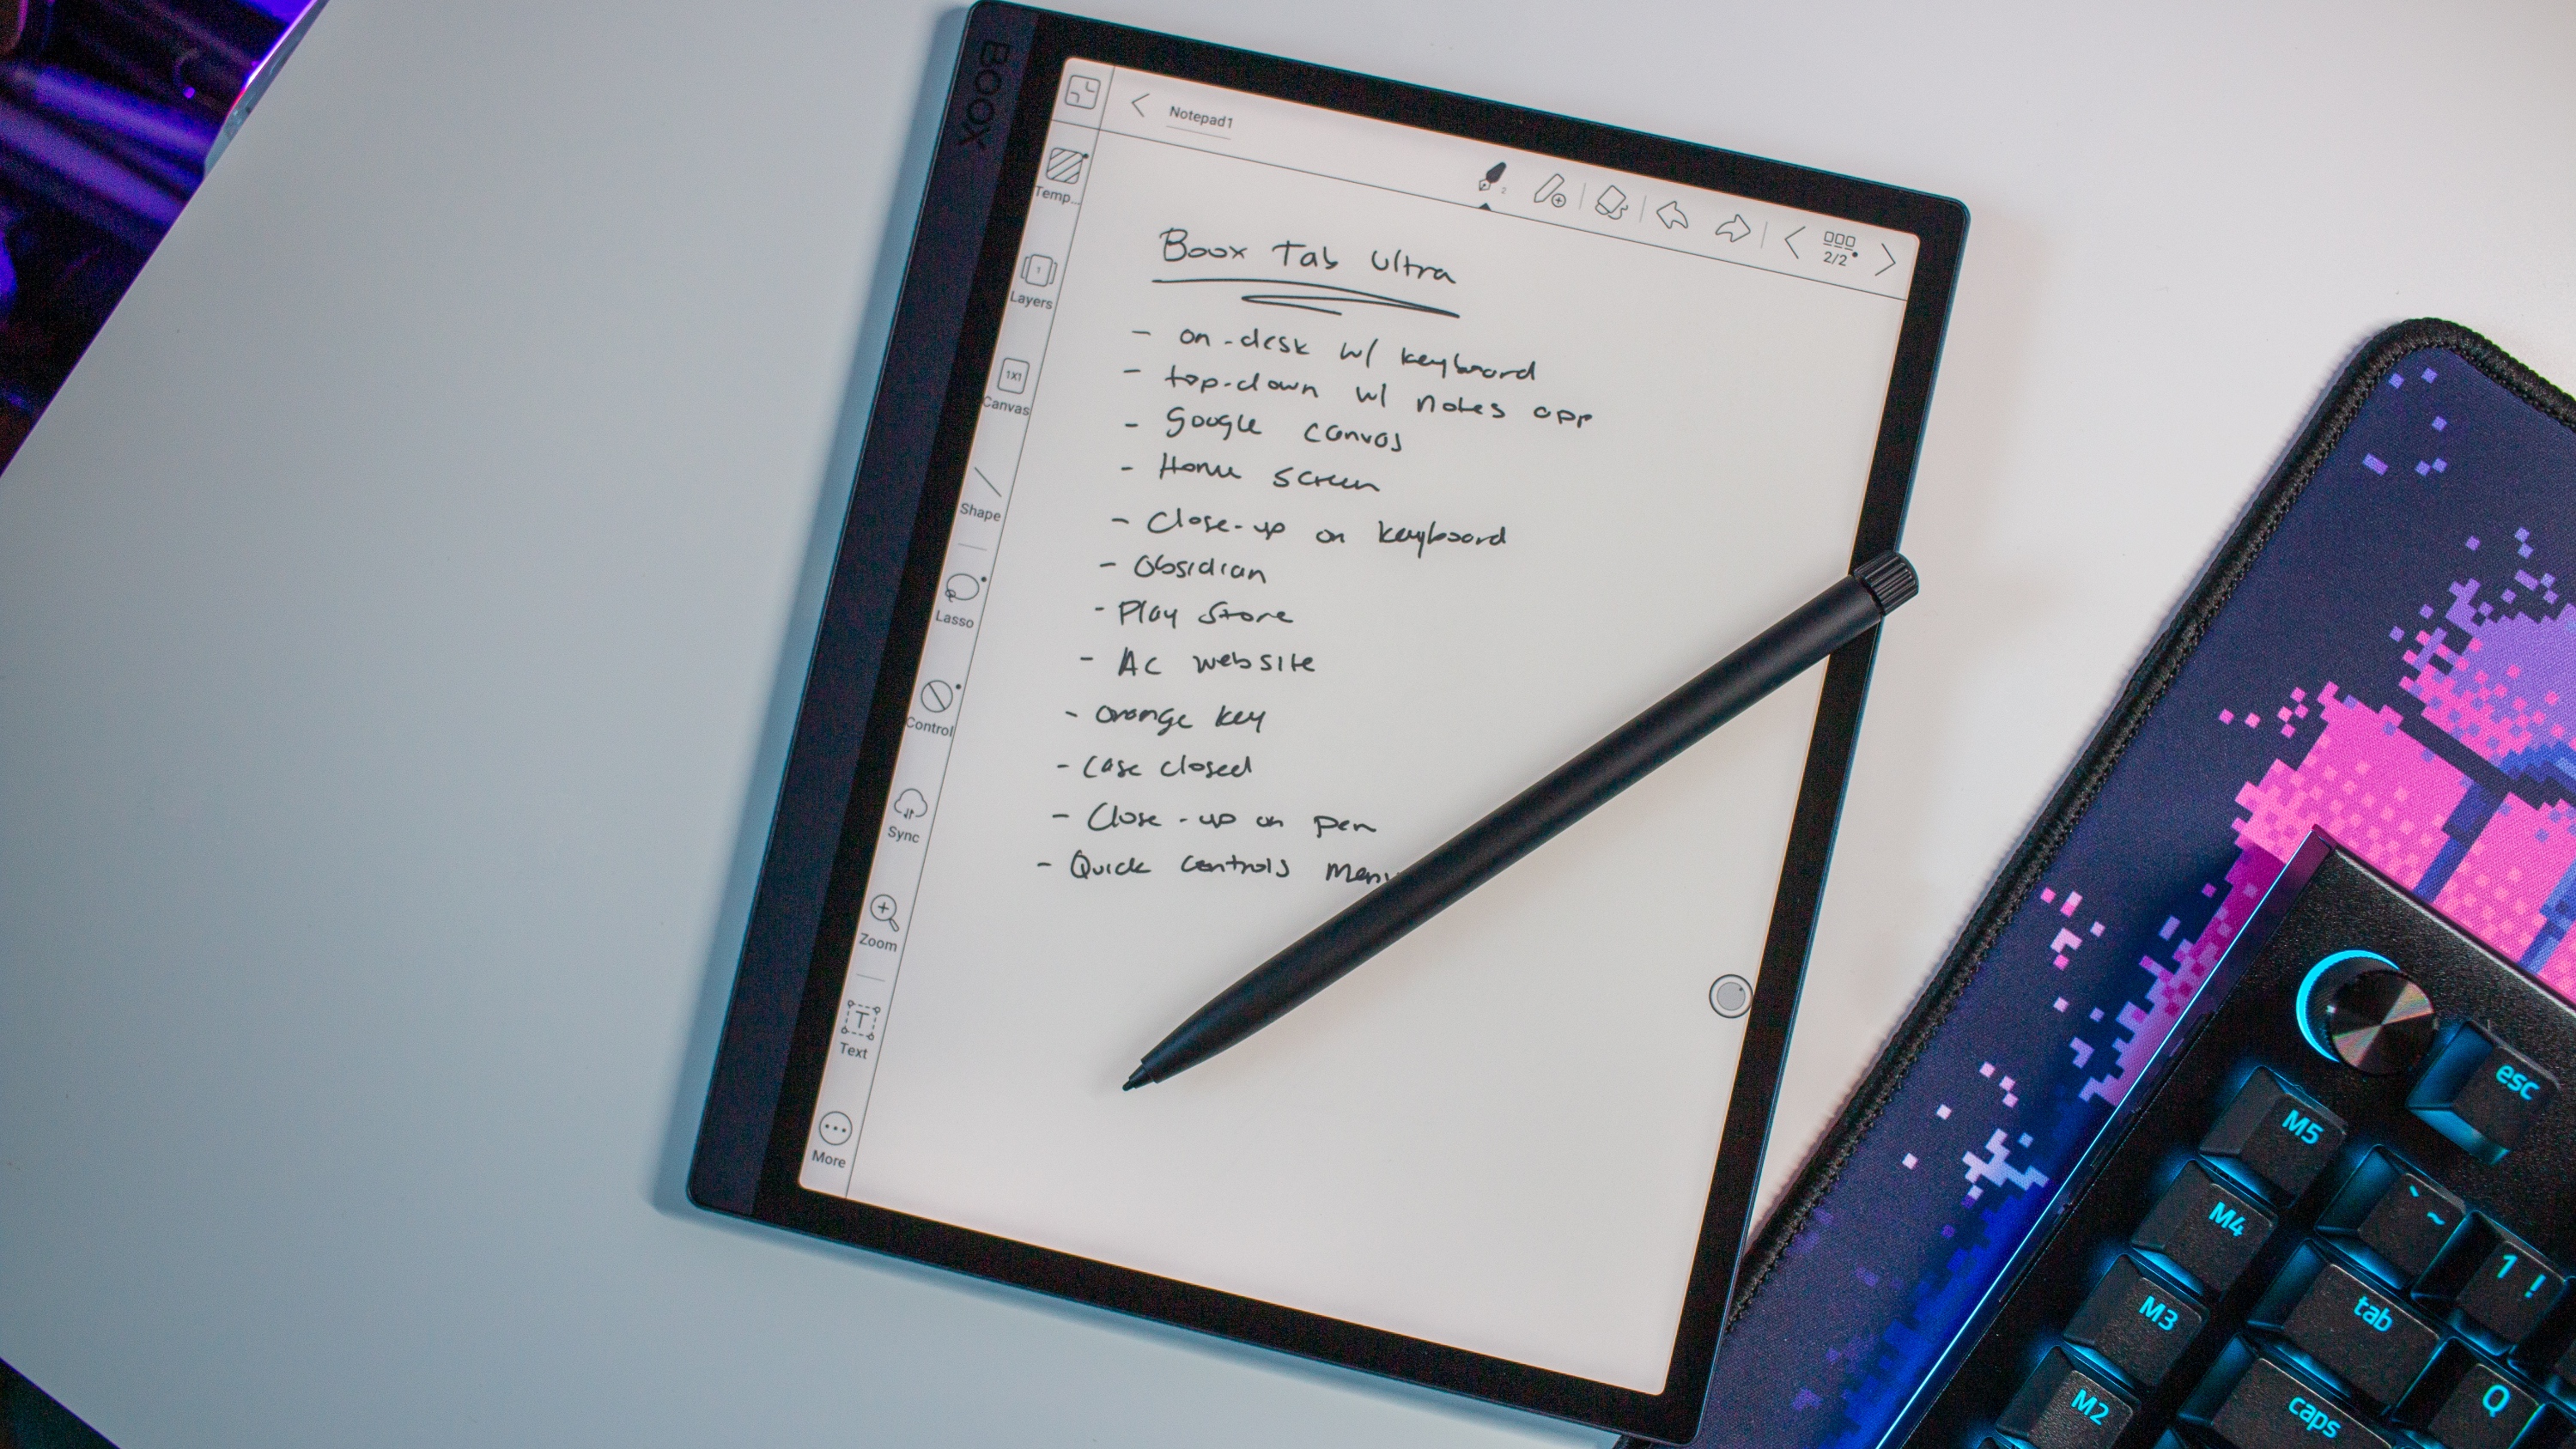 BOOX
Notepad1
2
2/2
Temp...
1
Layers
1X1
Canvas
Shape
Lasso
Control
Sync
Zoom
T
Text
More
Boox Tab Ultra
- on-desk w/ keyboard
- top-down w/ notes app
- Google canvas
- Home screen
- Close-up on keyboard
- Obsidian
- Play Store
- AC website
- orange key
- Case closed
- Close-up on pen
- Quick controls menu
esc
M5
` ~
M4
1 !
tab
M3
Q
caps
M2